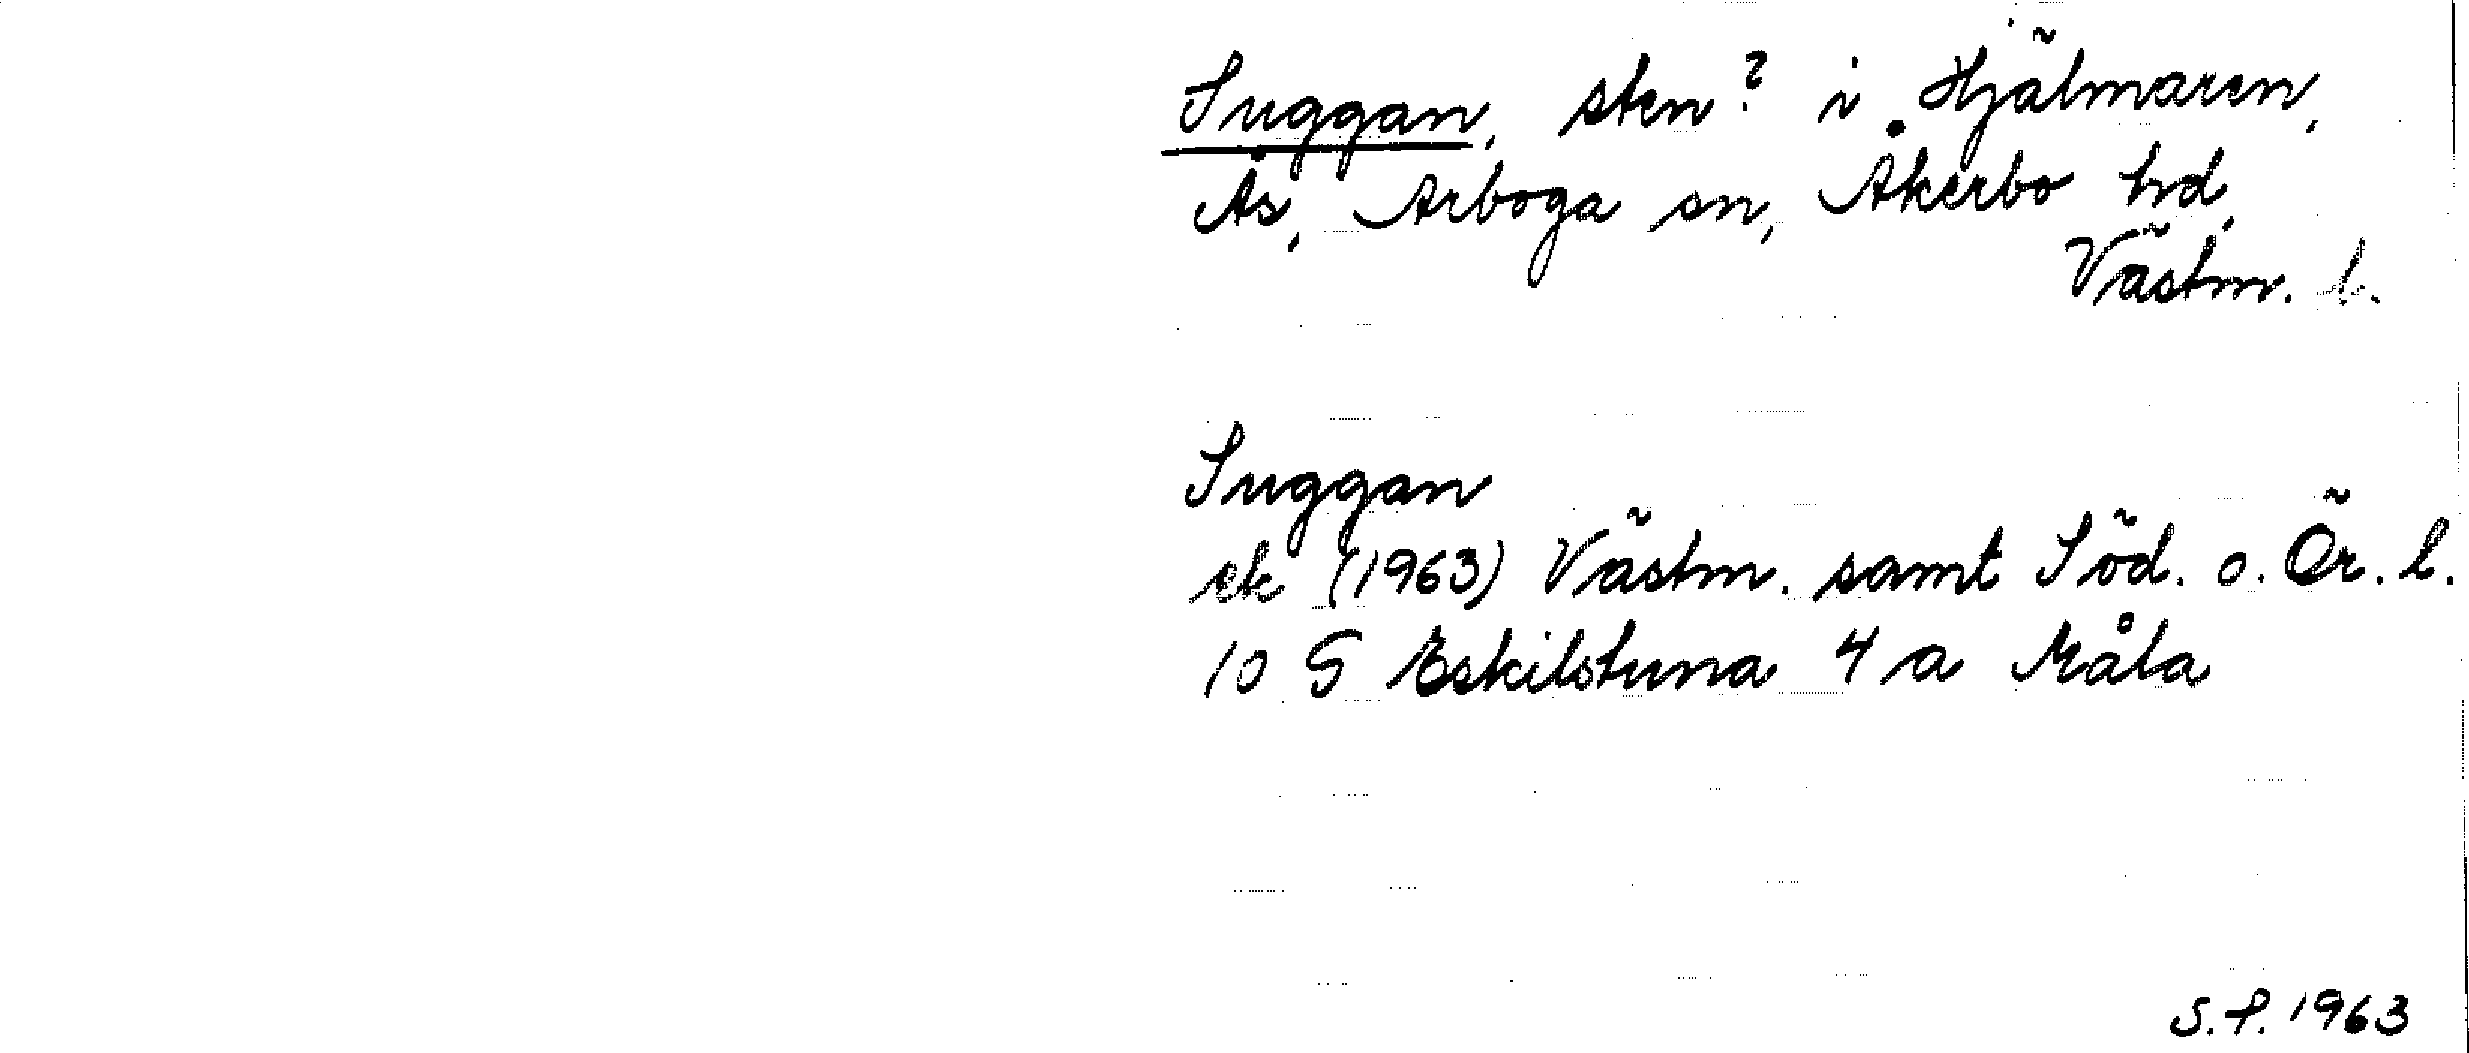 Suggan, sten? i Hjälmaren,
Ås, Arboga sn, Åkerbo hd,
Västm. l.
Suggan
ek (1963) Västm. samt Söd. o. Ör. l.
10 G Eskilstuna 4 a Måla
S.P. 1963